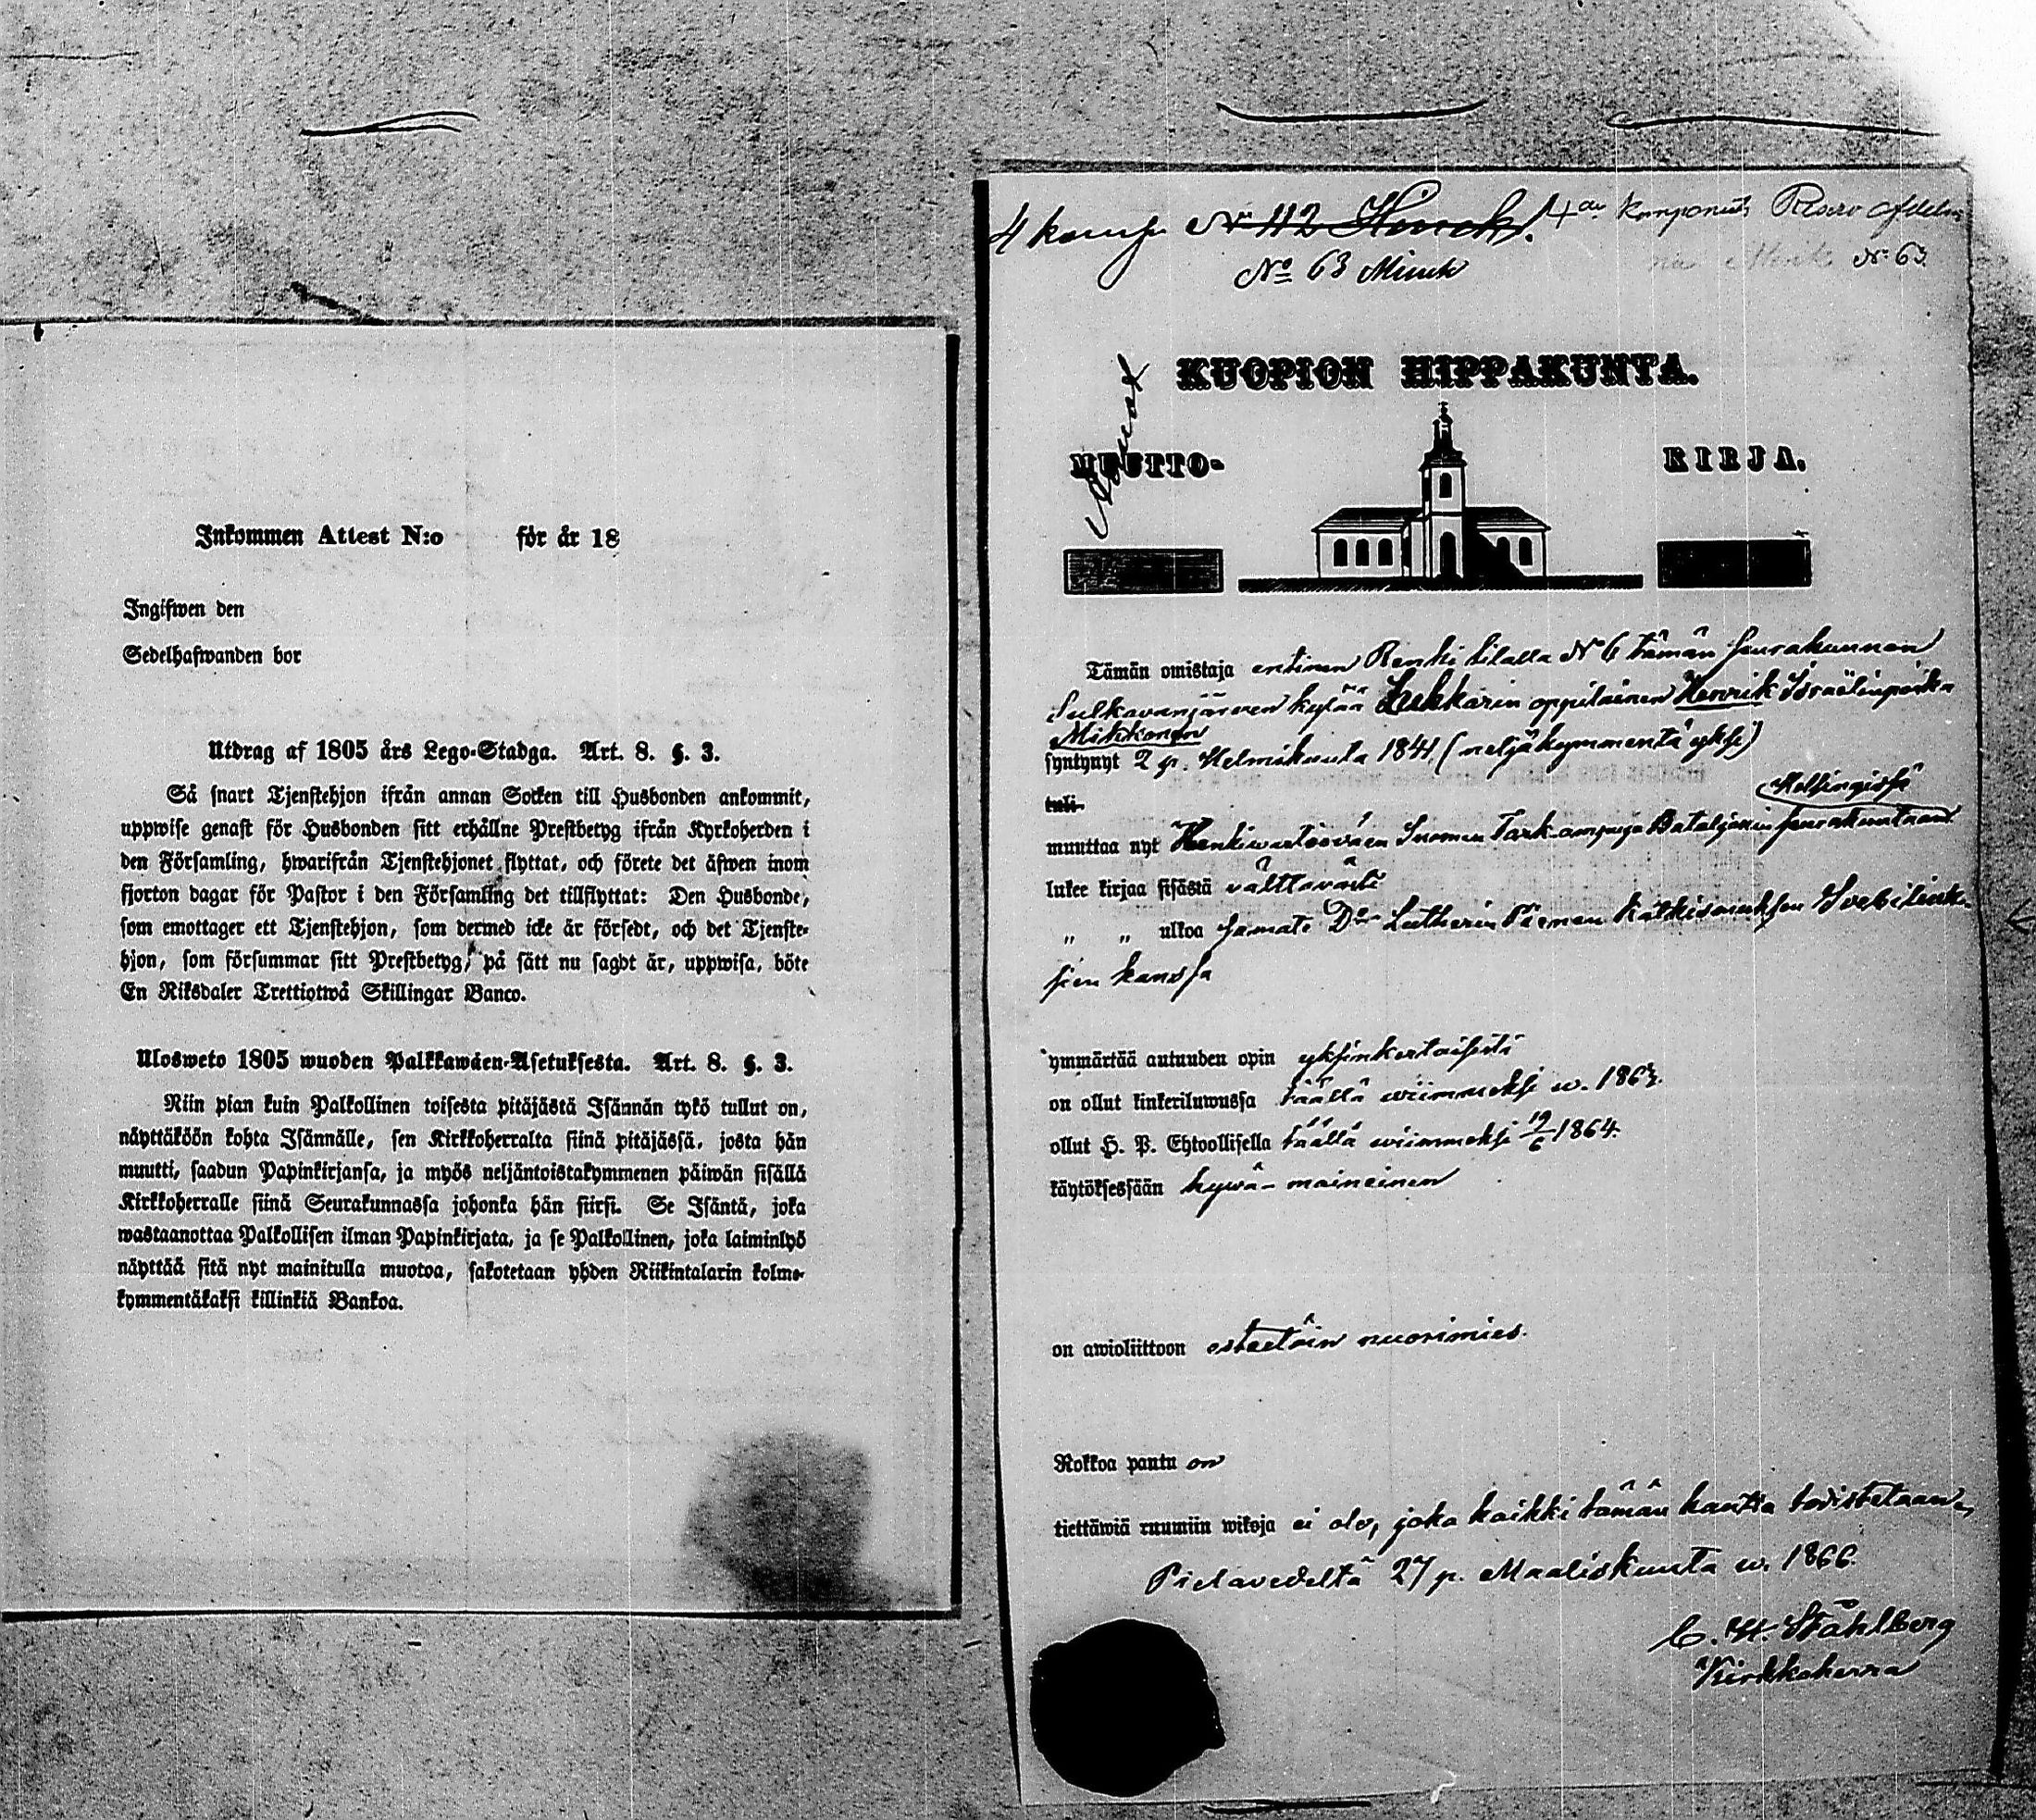 Inkommen Attest N:o för år 18
Ingifwen den
Sedelhafwanden bor
Utdrag af 1805 års Lego-Stadga. Art. 8. §. 3.
Så snart Tjenstehjon ifrån annan Socken till Husbonden ankommit,
uppwise genast för Husbonden sitt erhållne Prestbetyg ifrån Kyrkoherden i
den Församling, hwarifrån Tjenstehjonet flyttat, och förete det äfwen inom
fjorton dagar för Pastor i den Församling det tillflyttat: Den Husbonde,
som emottager ett Tjenstehjon, som dermed icke är försedt, och det Tjenste-
hjon, som försummar sitt Prestbetyg, på sätt nu sagdt är, uppwisa, böte
En Riksdaler Trettiotwå Skillingar Banco.
Ulosweto 1805 wuoden Palkkawäen-Asetuksesta. Art. 8. §. 3.
Niin pian kuin Palkollinen toisesta pitäjästä Isännän tykö tullut on,
näyttäköön kohta Isännälle, sen Kirkkoherralta siinä pitäjässä, josta hän
muutti, saadun Papinkirjansa, ja myös neljäntoistakymmenen päiwän sisällä
Kirkkoherralle siinä Seurakunnassa johonka hän siirsi. Se Isäntä, joka
wastaanottaa Palkollisen ilman Papinkirjata, ja se Palkollinen, joka laiminlyö
näyttää sitä nyt mainitulla muotoa, sakotetaan yhden Riikintalarin kolme-
kymmentäkaksi killinkiä Bankoa.
4 komp N:o 112 4de kompaniets Reserv
N:o 63 Minsk N:o 63
KUOPION HIPPAKUNTA.
MUUTTO- KIRJA.
Tämän omistaja entinen Renki tilalla N:o 6 tämän seurakunnan
Sulkavanjärven kylää Lukkarin oppilainen Henrik Israëlinpoika
Mikkonen
syntynyt 2 p. Helmikuuta 1841 (neljäkymmentä yksi)
tuli Helsingissä
muuttaa nyt Henkivartioväen Suomen Tark-ampuja Bataljonin seurakuntaan
lukee kirjaa sisästä välttävästi
" " ulkoa samate D:r Lutherin Pienen Katkismuksen Svebiliuk-
sen kanssa
ymmärtää autuuden opin yksinkertaisesti
on ollut kinkeriluwussa täällä wiimmeksi w. 186
ollut H. P. Ehtoollisella täällä wiimmeksi 19/6 1864.
käytöksessään hywä-maineinen
on awioliittoon esteetöin nuorimies.
Rokkoa pantu on
tiettäwiä ruumiin wikoja ei ole, joka kaikki tämän kautta todistetaan,
Pielavedeltä 27 p. Maaliskuuta w. 1866.
C. H. Ståhlberg
Kirkkoherra